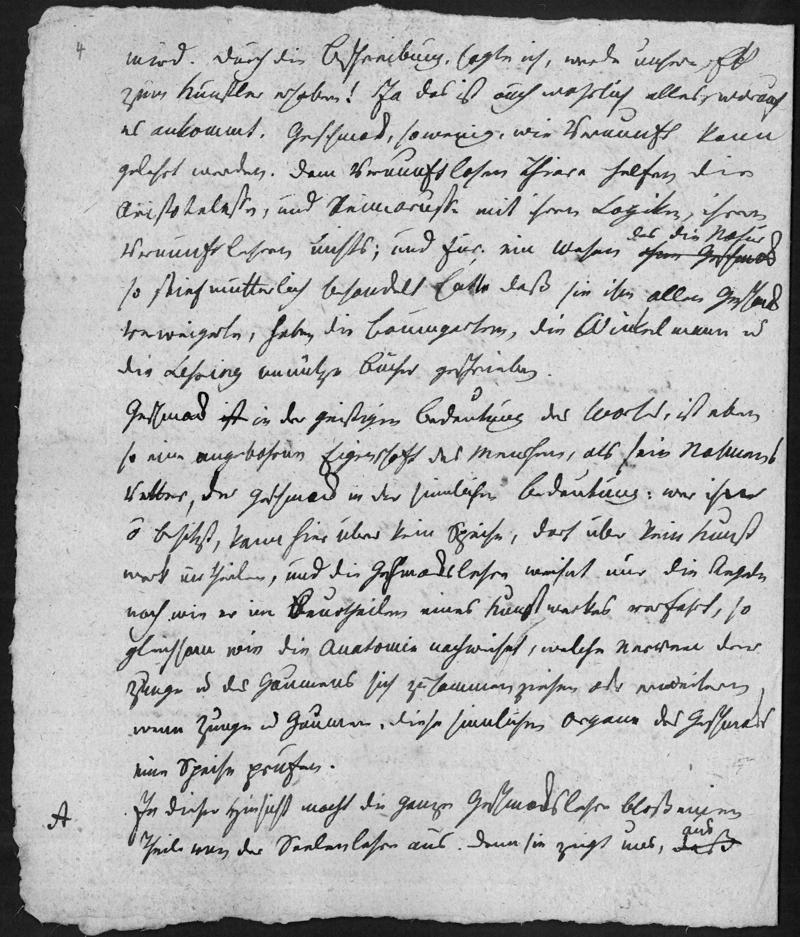 4
wird. Durch die Beschreibung, sagte ich, werde unser
zum Künstler erhoben! Ja das ist auch wahrlich alles, worauf
es ankommt. Geschmack, sowenig, wie Vernunft kann
gelehrt werden. Dem Vernunftlosen Thiere helfen die
Aristotelesse, und Reimarusse mit ihren Logiken, ihren
Vernunftlehren nichts; und für ein Wesen ohne Geschmack das die Natur
so stiefmütterlich behandelt hätte daß sie ihm allen Geschmack
verweigerte, haben die Baumgarten, die Winkelmann u
die Lessing unnütze Bücher geschrieben.
Geschmack ist in der geistigen Bedeutung des Worts, ist eben
so eine angebohrne Eigenschaft des Menschen, als sein Nahmens
Vetter, der Geschmack in der sinnlichen Bedeutung: wer ihn
õ besitzt, kann hier über kein Speise, dort über kein Kunst
werk urtheilen, und die Geschmackslehre weiset nur die Regeln
nach wie er im Beurtheilen eines Kunstwerkes verfährt, so
gleichsam wie die Anatomie nachweiset, welche Nerven der
Zunge u des Gaumens sich zusammenziehen oder erweitern,
wenn Zunge u Gaumen, diese sinnlichen Organe des Geschmacks
eine Speise prüfen.
A In dieser Hinsicht macht die ganze Geschmackslehre bloß einen
Theil von der Seelenlehre aus. Denn sie zeigt uns, daß aus